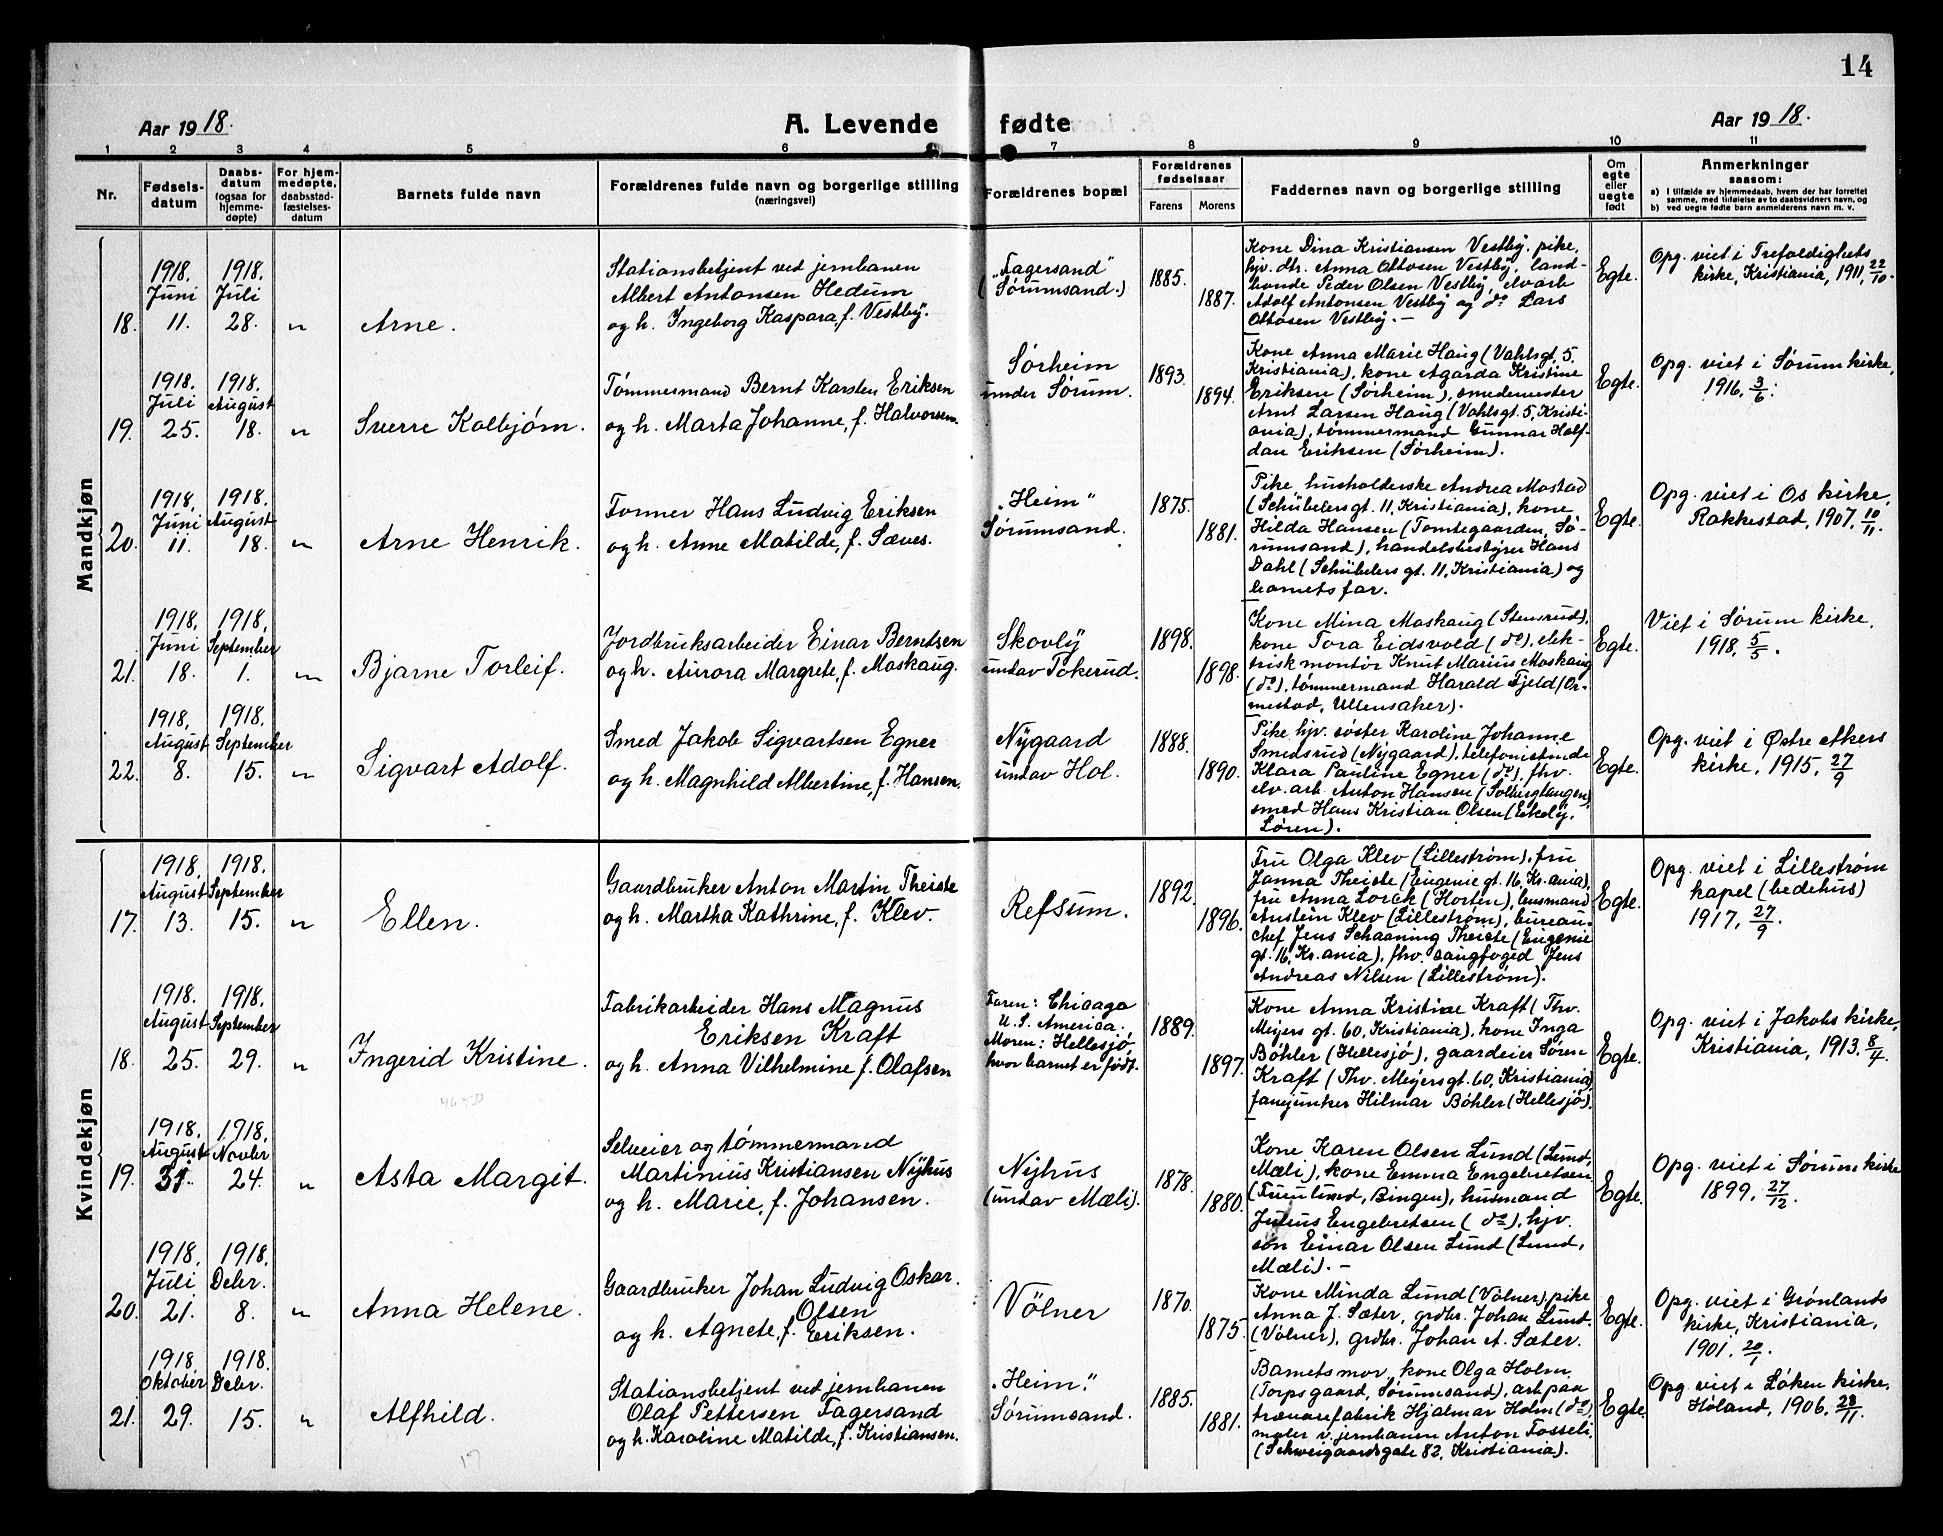 14
Aar 1918. A. Levende fødte Aar 1918.
1 2 3 4 5 6 7 8 9 10 11
Nr. Fødselsdatum Daabsdatum (ogsaa for hjemmedøpte) For hjemmedøpte, daabsstadfæstelsesdatum Barnets fulde navn Forældrenes fulde navn og borgerlige stilling (næringsvei) Forældrenes bopæl Forældrenes fødselsaar Farens Morens Faddernes navn og borgerlige stilling Om egte eller uegte født Anmerkninger saasom:
a) I tilfælde av hjemmedaab, hvem der har forrettet samme, med tilføielse av to daabsvidners navn, og
b) ved uegte fødte barn anmelderens navn m. v.
Mandkjøn
18. 1918. Juni 11. 1918. Juli 28. „ Arne.
Stationsbetjent ved jernbanen
Albert Antonsen Hedum
og h. Ingeborg Kaspara, f. Vestby.
"Fagersand"
(Sørumsand.)
1885. 1887.
Kone Dina Kristiansen Vestby, pike,
hjv. dtr. Anna Ottosen Vestby, land-
bonde Peder Olsen Vestby, elvarb
Adolf Antonsen Vestby og do Lars
Ottosen Vestby. —
Egte.
Opg. viet i Trefoldigheds
kirke, Kristiania, 1911, 22/10.
19. 1918. Juli 25. 1918. August 18. „ Sverre Kolbjørn.
Tømmermand Bernt Karsten Eriksen
og h. Marta Johanne, f. Halvorsen.
Sørheim
under Sørum.
1893. 1894.
Kone Anna Marie Haug (Vahlsgt. 5.
Kristiania), kone Agarda Kristine
Eriksen (Sørheim), smedemester
Arnt Larsen Haug (Vahlsgt. 5, Kristi-
ania), tømmermand Gunnar Half-
dan Eriksen (Sørheim).
Egte.
Opg. viet i Sørum kirke,
1916. 3/6.
20. 1918. Juni 11. 1918. August 18. „ Arne Henrik.
Former Hans Ludvig Eriksen
og h. Anne Matilde, f. Sæves.
"Heim"
Sørumsand.
1875. 1881.
Pike husholderske Andrea Mostad
(Schübelers gt. 11, Kristiania), kone
Hilda Hansen (Tomtegaarden, Sø-
rumsand), handelsbestyrer Hans
Dahl (Schübelers gt. 11, Kristiania) og
barnets far.
Egte.
Opg. viet i Os kirke,
Rakkestad, 1907, 10/11.
21. 1918. Juni 18. 1918. September 1. „ Bjarne Torleif.
Jordbruksarbeider Einar Berntsen
og h. Aurora Margrete, f. Moskaug.
Skovly
under Tokerud.
1898. 1898.
Kone Mina Moskaug (Stensrud),
kone Tora Eidsvold (do), elek-
trisk montør Knut Marius Moskaug
(do), tømmermand Harald Fjeld (Or-
mestad, Ullensaker).
Egte.
Viet i Sørum kirke,
1918, 5/5.
22. 1918. August 8. 1918. September 15. „ Sigvart Adolf.
Smed Jakob Sigvartsen Egner
og h. Magnhild Albertine, f. Hansen.
Nygaard
undav Hol.
1888. 1890.
Pike hjv. søster Karoline Johanne
Smedsrud (Nygaard), telefonistinde
Klara Pauline Egner (do), fhv.
elv. arb. Anton Hansen (Solbergtangen),
smed Hans Kristian Olsen (Eikely,
Løren).
Egte.
Opg. viet i Østre Akers
kirke, 1915, 27/9
Kvindekjøn
17. 1918. August 13. 1918. September 15. „ Ellen.
Gaardbruker Anton Martin Theiste
og h. Martha Kathrine, f. Klev.
Refsum.
1892. 1896.
Fru Olga Klev (Lillestrøm), fru
Janna Theiste (Eugenie gt. 16, Kr.ania),
fru Anna Lorck (Horten), lensmand
Anstein Klev (Lillestrøm), bureau-
chef Jens Schaaning Theiste (Eugenie
gt. 16, Kr.ania), fhv. sangfoged Jens
Andreas Nilsen (Lillestrøm).
Egte.
Opg. viet i Lillestrøm
kapel (bedehus)
1917, 27/9.
18. 1918. August 25. 1918. September 29. „ Ingerid Kristine.
Fabrikarbeider Hans Magnus
Eriksen Kraft
og h. Anna Vilhelmine f. Olafsen
Faren: Chicago
U. S. America.
Moren: Hellesjø
hvor barnet er født.
1889. 1897.
Kone Anna Kristine Kraft (Thv.
Meyers gt. 60, Kristiania), kone Inga
Bøhler (Hellesjø), gaardeier Søren
Kraft (Thv. Meyers gt. 60, Kristiania),
fanejunker Hilmar Bøhler (Hellesjø).
Egte.
Opg. viet i Jakobs kirke,
Kristiania, 1913. 8/4.
19. 1918. August 31. 1918. Novbr 24. „ Asta Margit.
Selveier og tømmermand
Martinius Kristiansen Nyhus
og h. Marie, f. Johansen.
Nyhus
(undav Mæli).
1878. 1880.
Kone Karen Olsen Lund (Lund,
Mæli), kone Emma Engebretsen
(Furulund, Bingen), husmand
Julius Engebretsen (do), hjv.
søn Einar Olsen Lund (Lund,
Mæli). —
Egte.
Opg. viet i Sørum kirke
1899. 27/12.
20. 1918. Juli 21. 1918. Debr. 8. „ Anna Helene.
Gaardbruker Johan Ludvig Oskar
Olsen
og h. Agnete, f. Eriksen.
Vølner
1870. 1875.
Kone Minda Lund (Vølner), pike
Anna J. Sæter, grdbr. Johan Lund
(Vølner), grdbr. Johan A. Sæter.
Egte.
Opg. viet i Grønlands
kirke, Kristiania,
1901. 20/1.
21. 1918. Oktober 29. 1918. Debr. 15. „ Alfhild.
Stationsbetjent ved jernbanen
Olaf Pettersen Fagersand
og h. Karoline Matilde, f. Kristiansen.
"Heim."
Sørumsand.
1885. 1881.
Barnets mor, kone Olga Holm,
(Torpsgaard, Sørumsand), arb. paa
trævarefabrik Hjalmar Holm (do),
maler v. jernbanen Anton Fosseli
(Schweigaardsgate 82, Kristiania).
Egte.
Opg. viet i Løken kirke,
Høland, 1906, 23/11.